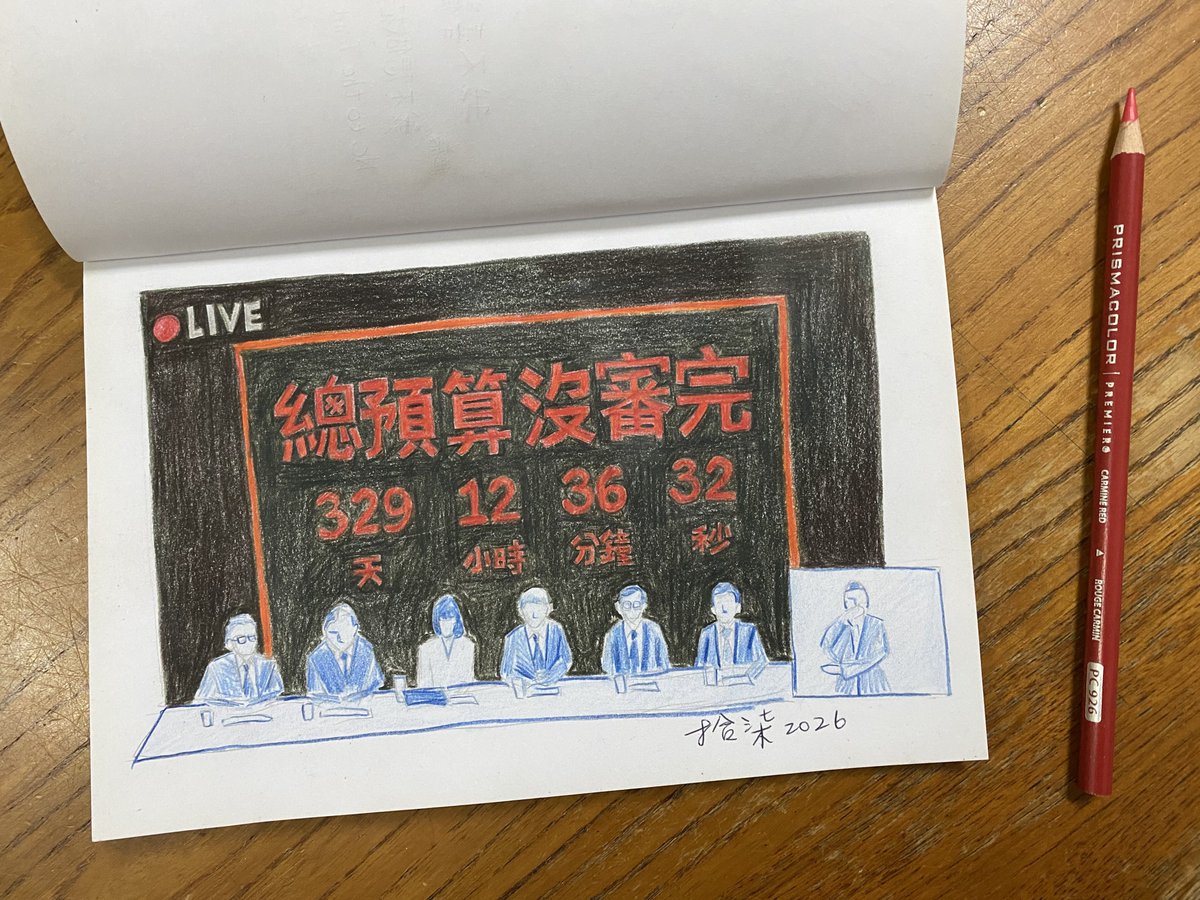 LIVE
總預算沒審完
329 12 36 32
天 小時 分鐘 秒
拾柒 2026
PRISMACOLOR | PREMIER® CARMINE RED ROUGE CARMIN PC926